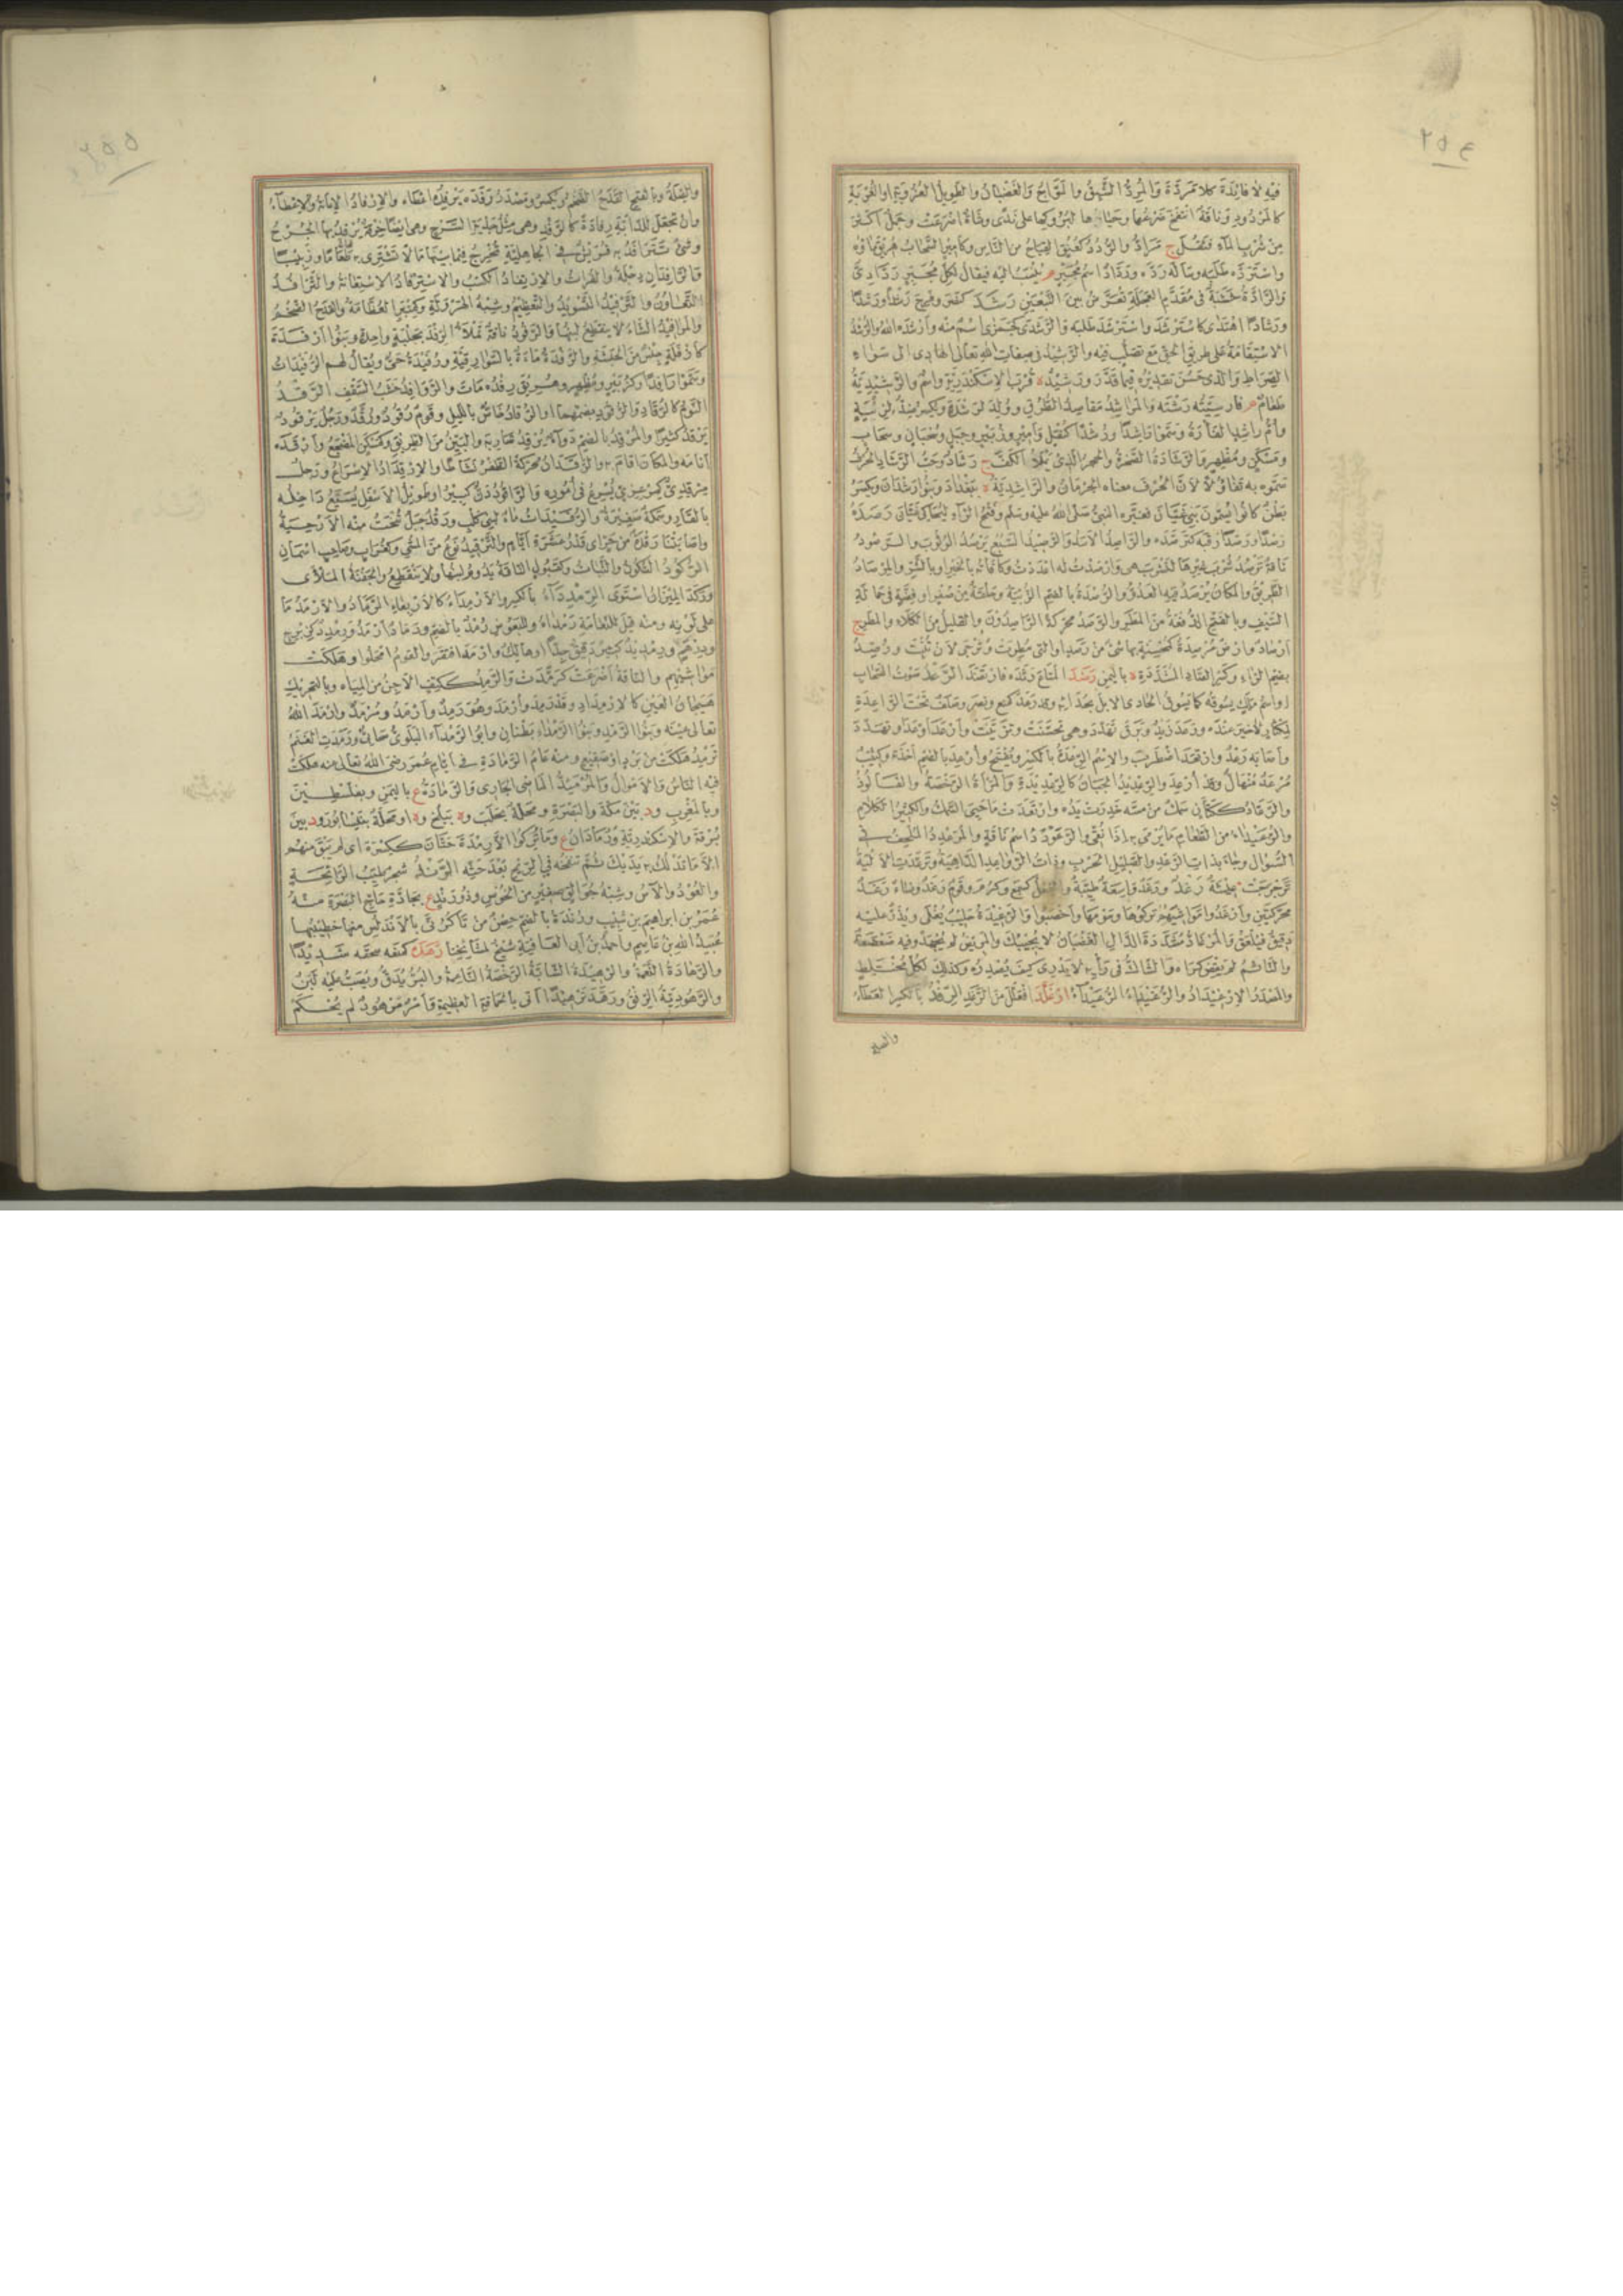 ٢٥٤
فيه لا فائدة كلا مردة والمرد الشبق والمواج والغضبان والطويل العزوبة او الغربة
كالمردود وناقة انتفخ ضرعها وحياؤها لبروكها على ندى وشاة اضرعت وجمل اكثر
من شرب الماء فثقل ج مراد والردد كعنق القباح من الناس وكامير السحاب هريق ماؤه
واسترده طلبه وساله رده ورداد اسم مجبر م ينسب اليه فيقال لكل مجبر ردادى
والرادة خشبة فى مقدم العجلة تعرض بين النبعين رشد كنصر وفرح رشدا ورشدا
ورشادا اهتدى كاسترشد واسترشد طلبه والرشدى كجمزى اسم منه وارشده الله والرشد
الاستقامة على طريق الحق مع تصلب فيه والرشيد فى صفات الله تعالى الهادى الى سواء
الصراط والذى حسن تقديره فيما قدر ورشيد ة قرب الاسكندرية واسم والرشيدية
طعام م فارسيته رشته والمراشد مقاصد الطرق وولد لرشدة ويكسر ضد لزنية
وام راشد الفارة وسموا راشدا ورشدا كقفل وامير وزبير وجبل وسحبان وسحاب
ومسكن ومظهر والرشادة الصخرة والحجر الذى يملا الكف ج رشاد وحب الرشاد الحرف
سموه به تفاؤلا لان الحرف معناه الحرمان والراشدية ة ببغداد وبنو رشدان ويكسر
بطن كانوا يسمون بنى غيان فغيره النبى صلى الله عليه وسلم وفتح الراء ليحاكى غيان رصده
رصدا ورصدا رقبه كترصده والراصد الاسد والرصيد السبع يرصد الوثوب والرصود
ناقة ترصد شرب غيرها لتشرب هى وارصدت له اعددت وكافاته بالخير او بالشر والمرصاد
الطريق والمكان يرصد فيه العدو والرصدة بالضم الزبية وحلقة من صفر او فضة فى حمالة
السيف وبالفتح الدفعة من المطر والرصد محركة الراصدون والقليل من الكلاء والمطر ج
ارصاد وارض مرصدة كمحسنة بها شىء من رصد او التى مطرت وترجى لان تنبت ورصد
بضم الراء وكسر الصاد المشددة ة باليمن رضد المتاع رثده فارتضد الرعد صوت السحاب
او اسم ملك يسوقه كما يسوق الحادى الابل بحدائه وقد رعد كمنع ونصر وصلف تحت الراعدة
لمكثار لا خير عنده ورعد زيد وبرق تهدد وهى تحسنت وتزينت وارعد اوعد او تهدد
واصابه رعد وارتعد اضطرب والاسم الرعدة بالكسر ويفتح وارعد بالضم اخذته وكثيب
مرعد منهال وقد ارعد والرعديد الجبان كالرعديدة والمراة الرخصة والفالوذ
والرعاد ككتان سمك من مسه خدرت يده وارتعدت ما حيى السمك والكثير الكلام
والرعيداء من الطعام ما يرمى به اذا نقى والرعودد اسم ناقة والمرعدد الملحف فى
السؤال وجاء بذات الرعد والصليل الحرب وذات الرواعد الداهية وترعددت الالية
ترجرجت عيشة رغد ورغد واسعة طيبة والفعل كسمع وكرم وقوم رغد ونساء رغد
محركتين وارغدوا مواشيهم تركوها وسومها واخصبوا والرغيدة حليب يغلى ويذر عليه
دقيق فيلعق والمرغاد مشددة الدال الغضبان لا يجيبك والمريض لم يجهد وفيه ضعضعة
والنائم لم يقض كراه والشاك فى رايه لا يدرى كيف يصدره وكذلك لكل مختلط
والمصدر الارغيداد والرغيداء الرعيداء ارغلد افعلل من الرغد الرفد بالكسر العطاء
والصلة
٢٥٥
والصلة وبالفتح القدح الضخم ويكسر ومصدر رفده يرفده اعطاه والارفاد الاعانة والاعطاء
وان تجعل للدابة رفادة كالرفد وهى مثل جدية السرج وهى ايضا خرقة يرفد بها الجرح
وشىء تترافد به قريش فى الجاهلية تخرج فيما بينها مالا تشترى به طعاما وزبيبا
والرافدان دجلة والفرات والارتفاد الكسب والاسترفاد الاستعانة والترافد
التعاون والترفيد التسويد والتعظيم وشبه الهرولة وكمنبر العظامة والقدح الضخم
والمرافيد الشاء لا ينقطع لبنها والرفود ناقة تملا الرفد بحلبة واحدة وبنو ارفدة
كارفلة جنس من الحبشة والرفدة ماءة بالسوارقية ورفيدة حى ويقال لهم الرفيدات
وسموا رافدا وكزبير ومظهر وهريق رفده مات والروافد خشب السقف الرقد
النوم كالرقاد والرقود بضمهما او الرقاد خاص بالليل وقوم رقود ورقد ورجل يرقود
يرقد كثيرا والمرقد بالضم دواء يرقد شاربه والبين من الطريق وكمسكن المضجع وارقده
انامه والمكان اقام به والرقدان محركة القفز نشاطا والارقداد الاسراع ورجل
مرقدى كمرعزى يسرع فى اموره والراقود دن كبير او طويل الاسفل يسيع داخله
بالقار وسمكة صغيرة والرقيدات ماء لبنى كلب ورقد جبل تنحت منه الارحية
واصابتنا رقدة من حر اى قدر عشرة ايام والترقيد نوع من المشى وكغراب وصاحب اسمان
الركود السكون والثبات وكصبور الناقة يدوم لبنها ولا ينقطع والجفنة الملاى
وركد الميزان استوى الرمدداء بالكسر والارمداء كالاربعاء الرماد والارمد ما
على لونه ومنه قيل للنعامة رمداء وللبعوض رمد بالضم ورماد ارمد ورمدد كزبرج
ودرهم ورمديد كثير دقيق جدا او هالك وارمد افتقر والقوم امحلوا وهلكت
مواشيهم والناقة اضرعت كرمدت والرمد ككتف الاجن من المياه وبالتحريك
هيجان العين كالارمداد وقد رمد وارمد وهو رمد وارمد ومرمد وارمد الله
تعالى عينه وبنو الرمد وبنو الرمداء بطنان وابو الرمداء البلوى صحابى ورمدت الغنم
ترمد هلكت من برد او صقيع ومنه عام الرمادة فى ايام عمر رضى الله تعالى عنه هلكت
فيه الناس والاموال والمرمئد الماضى الجارى والرمادة ع باليمن وبفلسطين
وبالمغرب ود بين مكة والبصرة ومحلة بحلب وة ببلخ وة او محلة بنيسابور ود بين
برقة والاسكندرية ورمادان ع وما تركوا الا رمدة حتان ككسرة اى لم يبق منهم
الا ما تدلك به يديك ثم تنفخه فى الريح بعد حته الرند شجر طيب الرائحة
والعود والاس وشبه جوالق صغير من الخوص وذو رند ع بجادة حاج البصرة منه
عمر بن ابراهيم بن شبيب ورندة بالضم حصن من تاكرنى بالاندلس منها خطيبها
عبيد الله بن عاصم واحمد بن ابى العافية شيخ لمشايخنا رهده كمنعه سحقه شديدا
والرهادة النعمة والرهيدة الشابة الرخصة الناعمة والبر يدق ويصب عليه لبن
والرهودية الرفق ورهد ترهيدا اتى بالحماقة العظيمة وامر مرهود لم يحكم